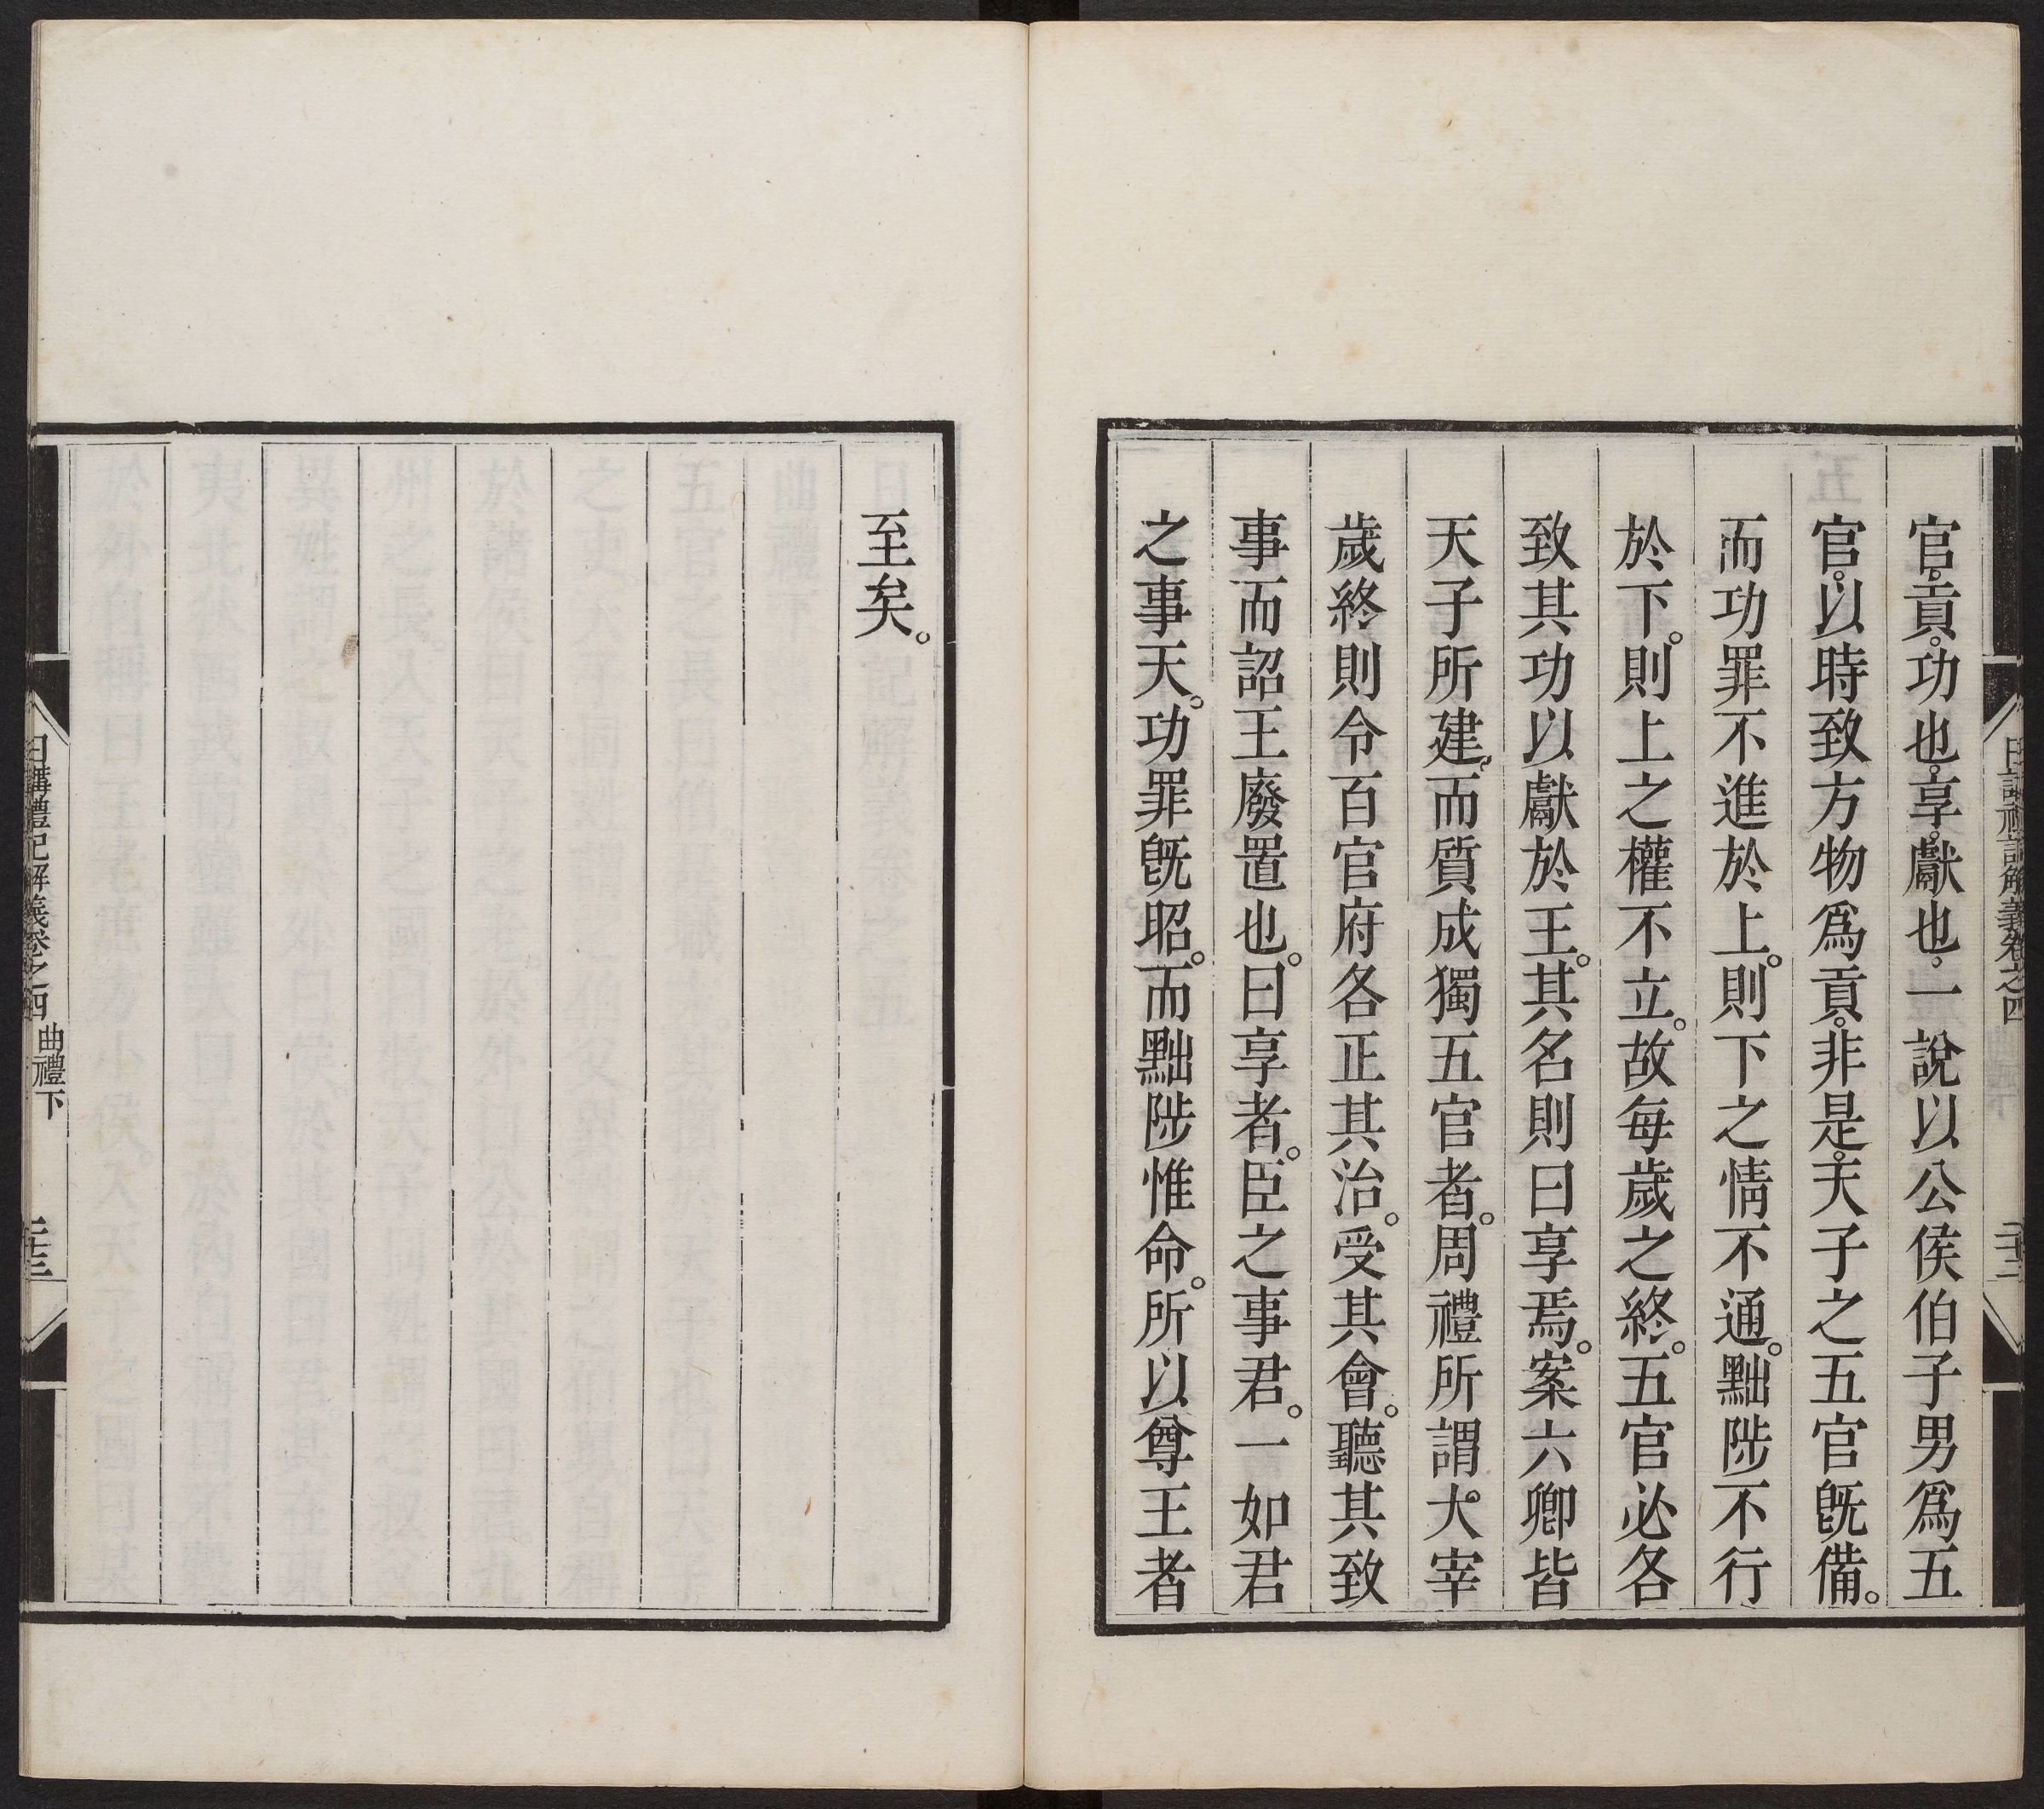 官。貢。功也。享。獻也。一說以公侯伯子男爲五
官。以時致方物爲貢。非是。天子之五官旣備。
而功罪不進於上。則下之情不通。黜陟不行
於下。則上之權不立。故每歲之終。五官必各
致其功以獻於王。其名則曰享焉。案六卿皆
天子所建。而質成獨五官者。周禮所謂大宰
歲終則令百官府各正其治。受其會。聽其致
事而詔王廢置也。曰享者。臣之事君。一如君
之事天。功罪旣昭。而黜陟惟命。所以尊王者
至矣。
日講禮記解義卷之四 曲禮下
二十三
日講禮記解義卷之四
二十二